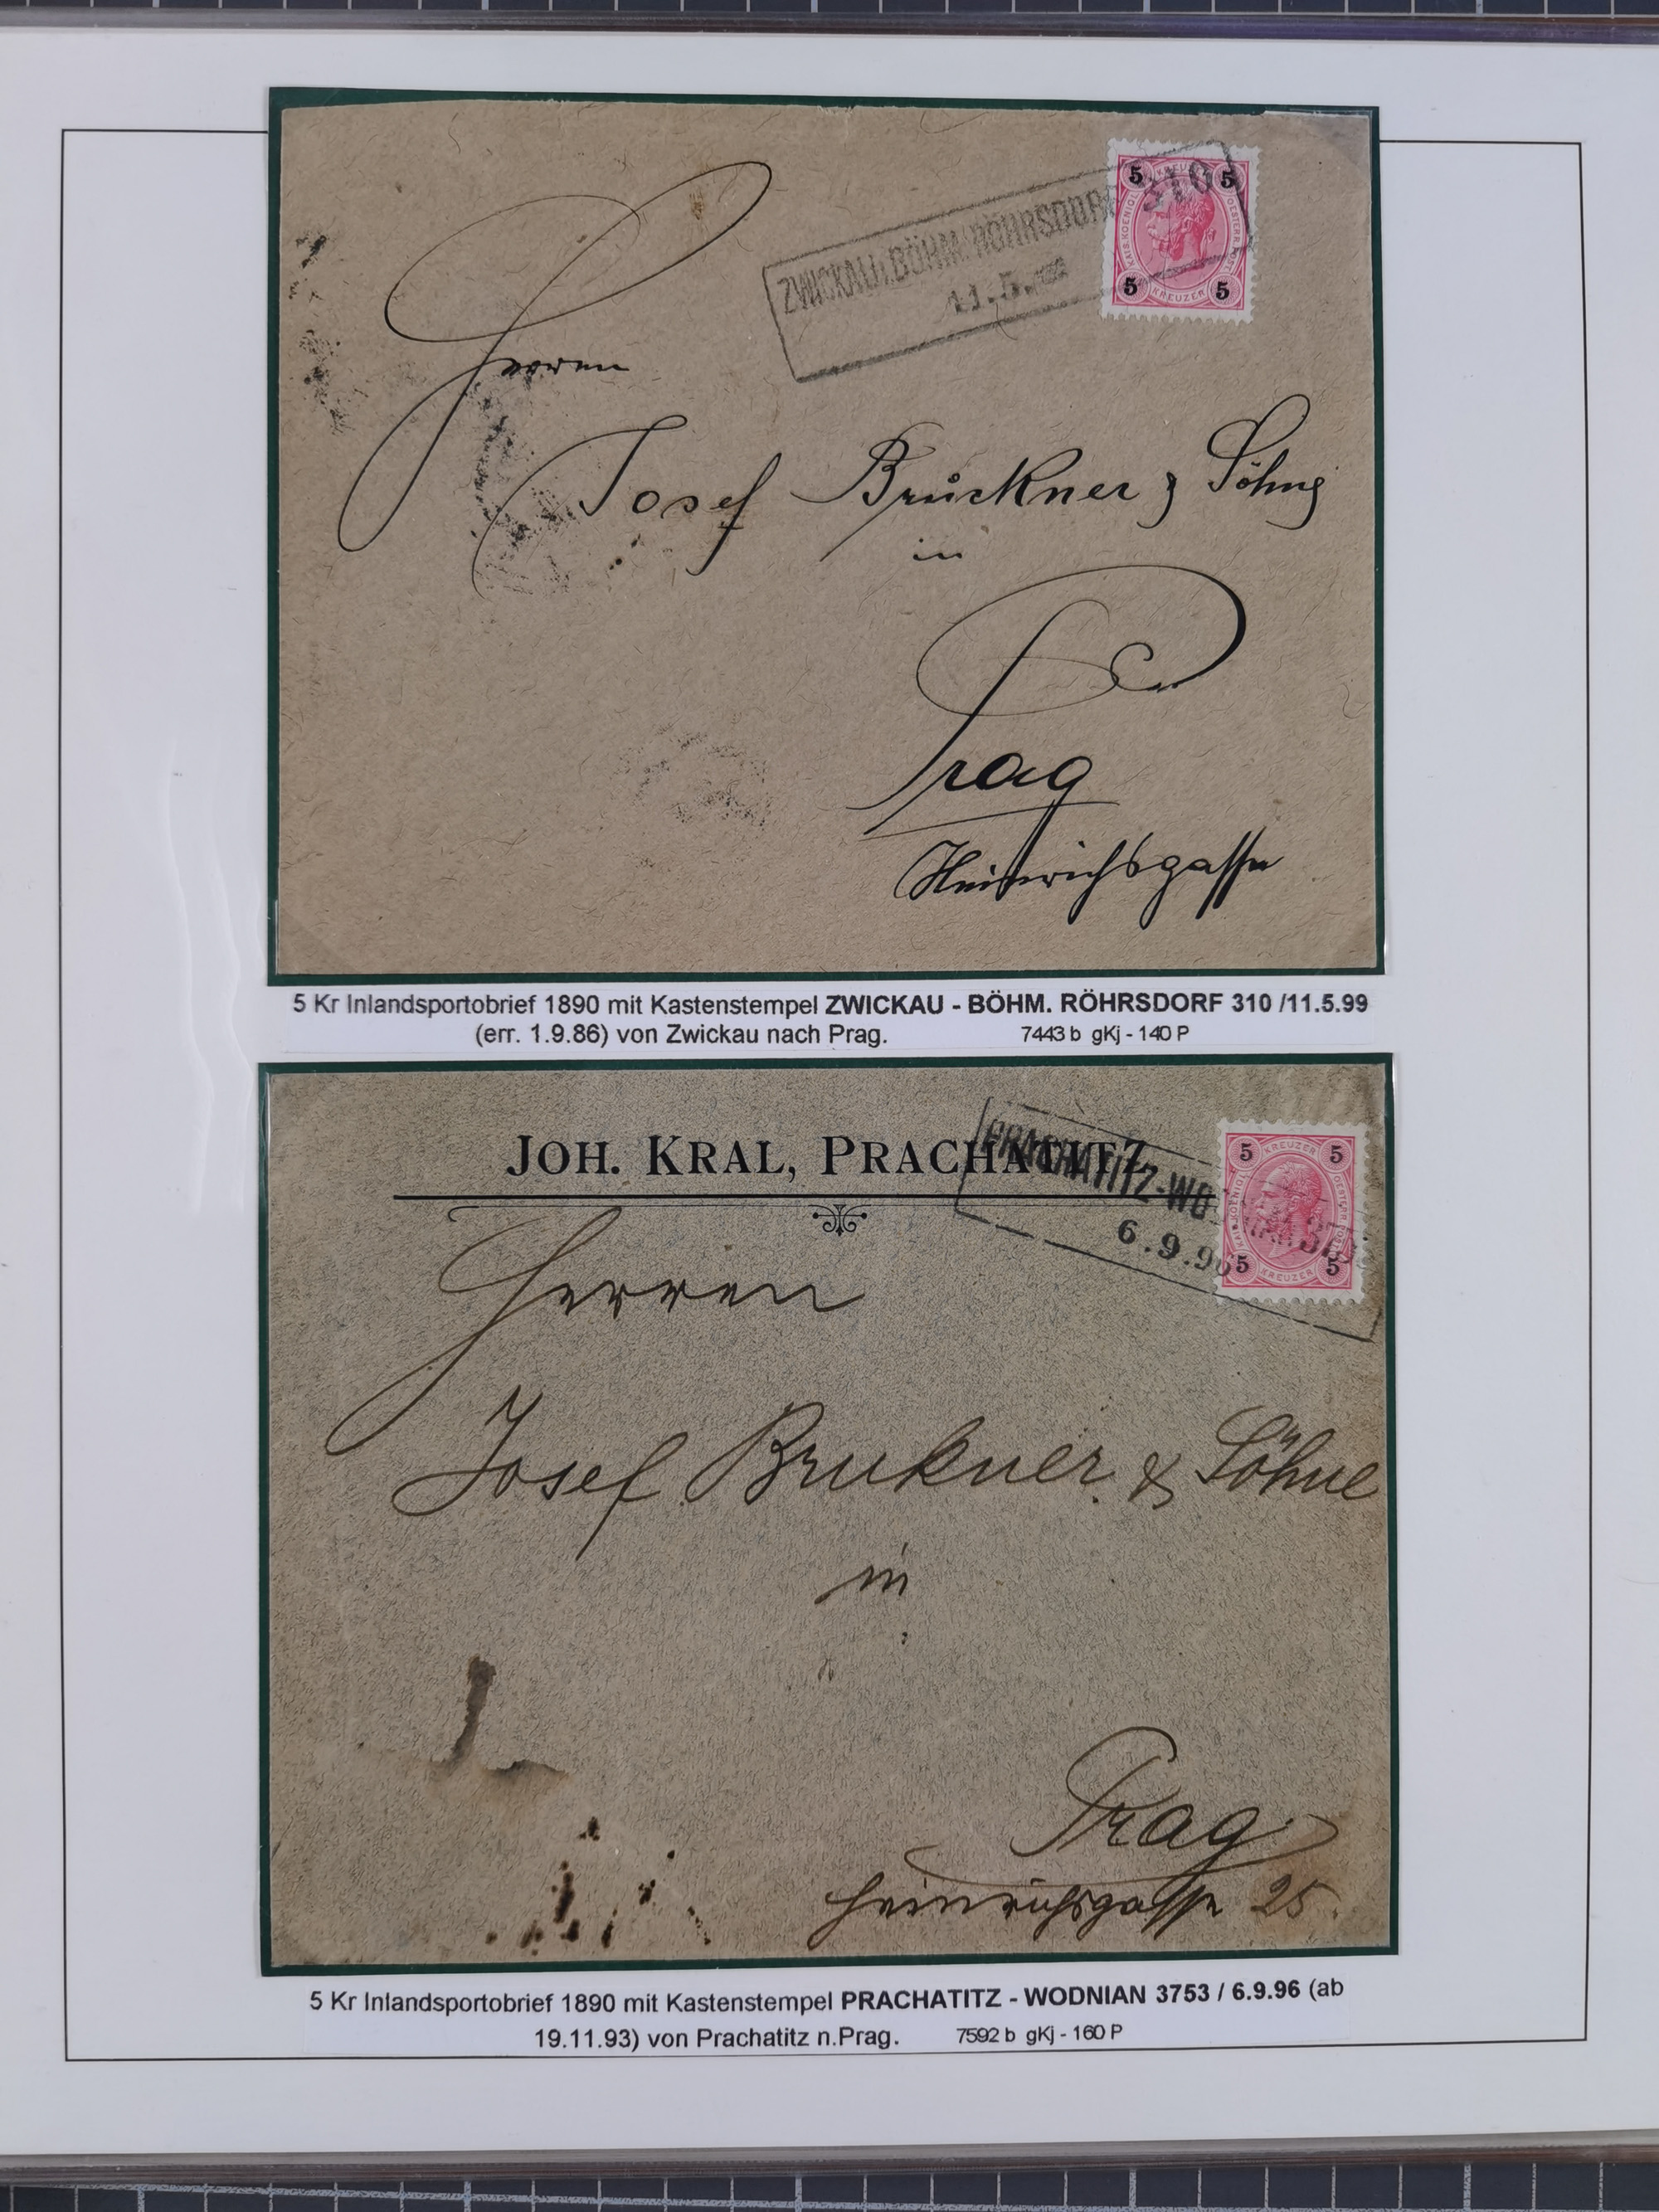 ZWICKAU i. BÖHM. RÖHRSDORF 310
11.5.
5 KREUZER 5
KAIS. KOENIGL. OESTERR. POST
5 KREUZER 5
Herren
Josef Brückner & Söhne
in
Prag
Heinrichsgasse
5 Kr Inlandsportobrief 1890 mit Kastenstempel ZWICKAU - BÖHM. RÖHRSDORF 310 /11.5.99
(err. 1.9.86) von Zwickau nach Prag. 7443 b gKj - 140 P
JOH. KRAL, PRACHATITZ
PRACHATITZ-WO
6.9.96
5 KREUZER 5
KAIS. KOENIGL. OESTERR. POST
5 KREUZER 5
Herren
Josef Brukner & Söhne
in
Prag
Heinrichsgasse 25.
5 Kr Inlandsportobrief 1890 mit Kastenstempel PRACHATITZ - WODNIAN 3753 / 6.9.96 (ab
19.11.93) von Prachatitz n.Prag. 7592 b gKj - 160 P